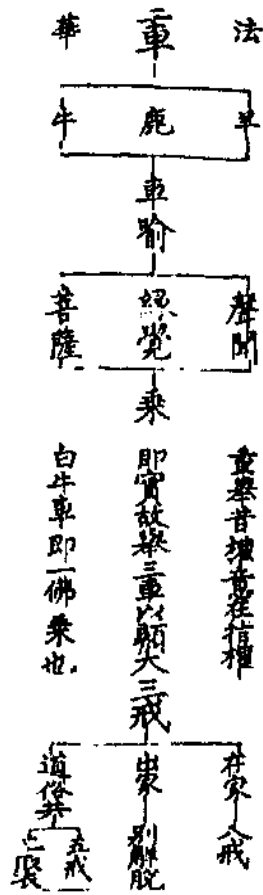 法
三車
華
羊
鹿
牛
車喻
聲聞
緣覺
菩薩
乘
重舉昔權意在指權
即實故舉三車以顯大
白牛車即一佛乘也。
三戒
在家
八戒
出家
別解脫
道俗共
五戒
聚